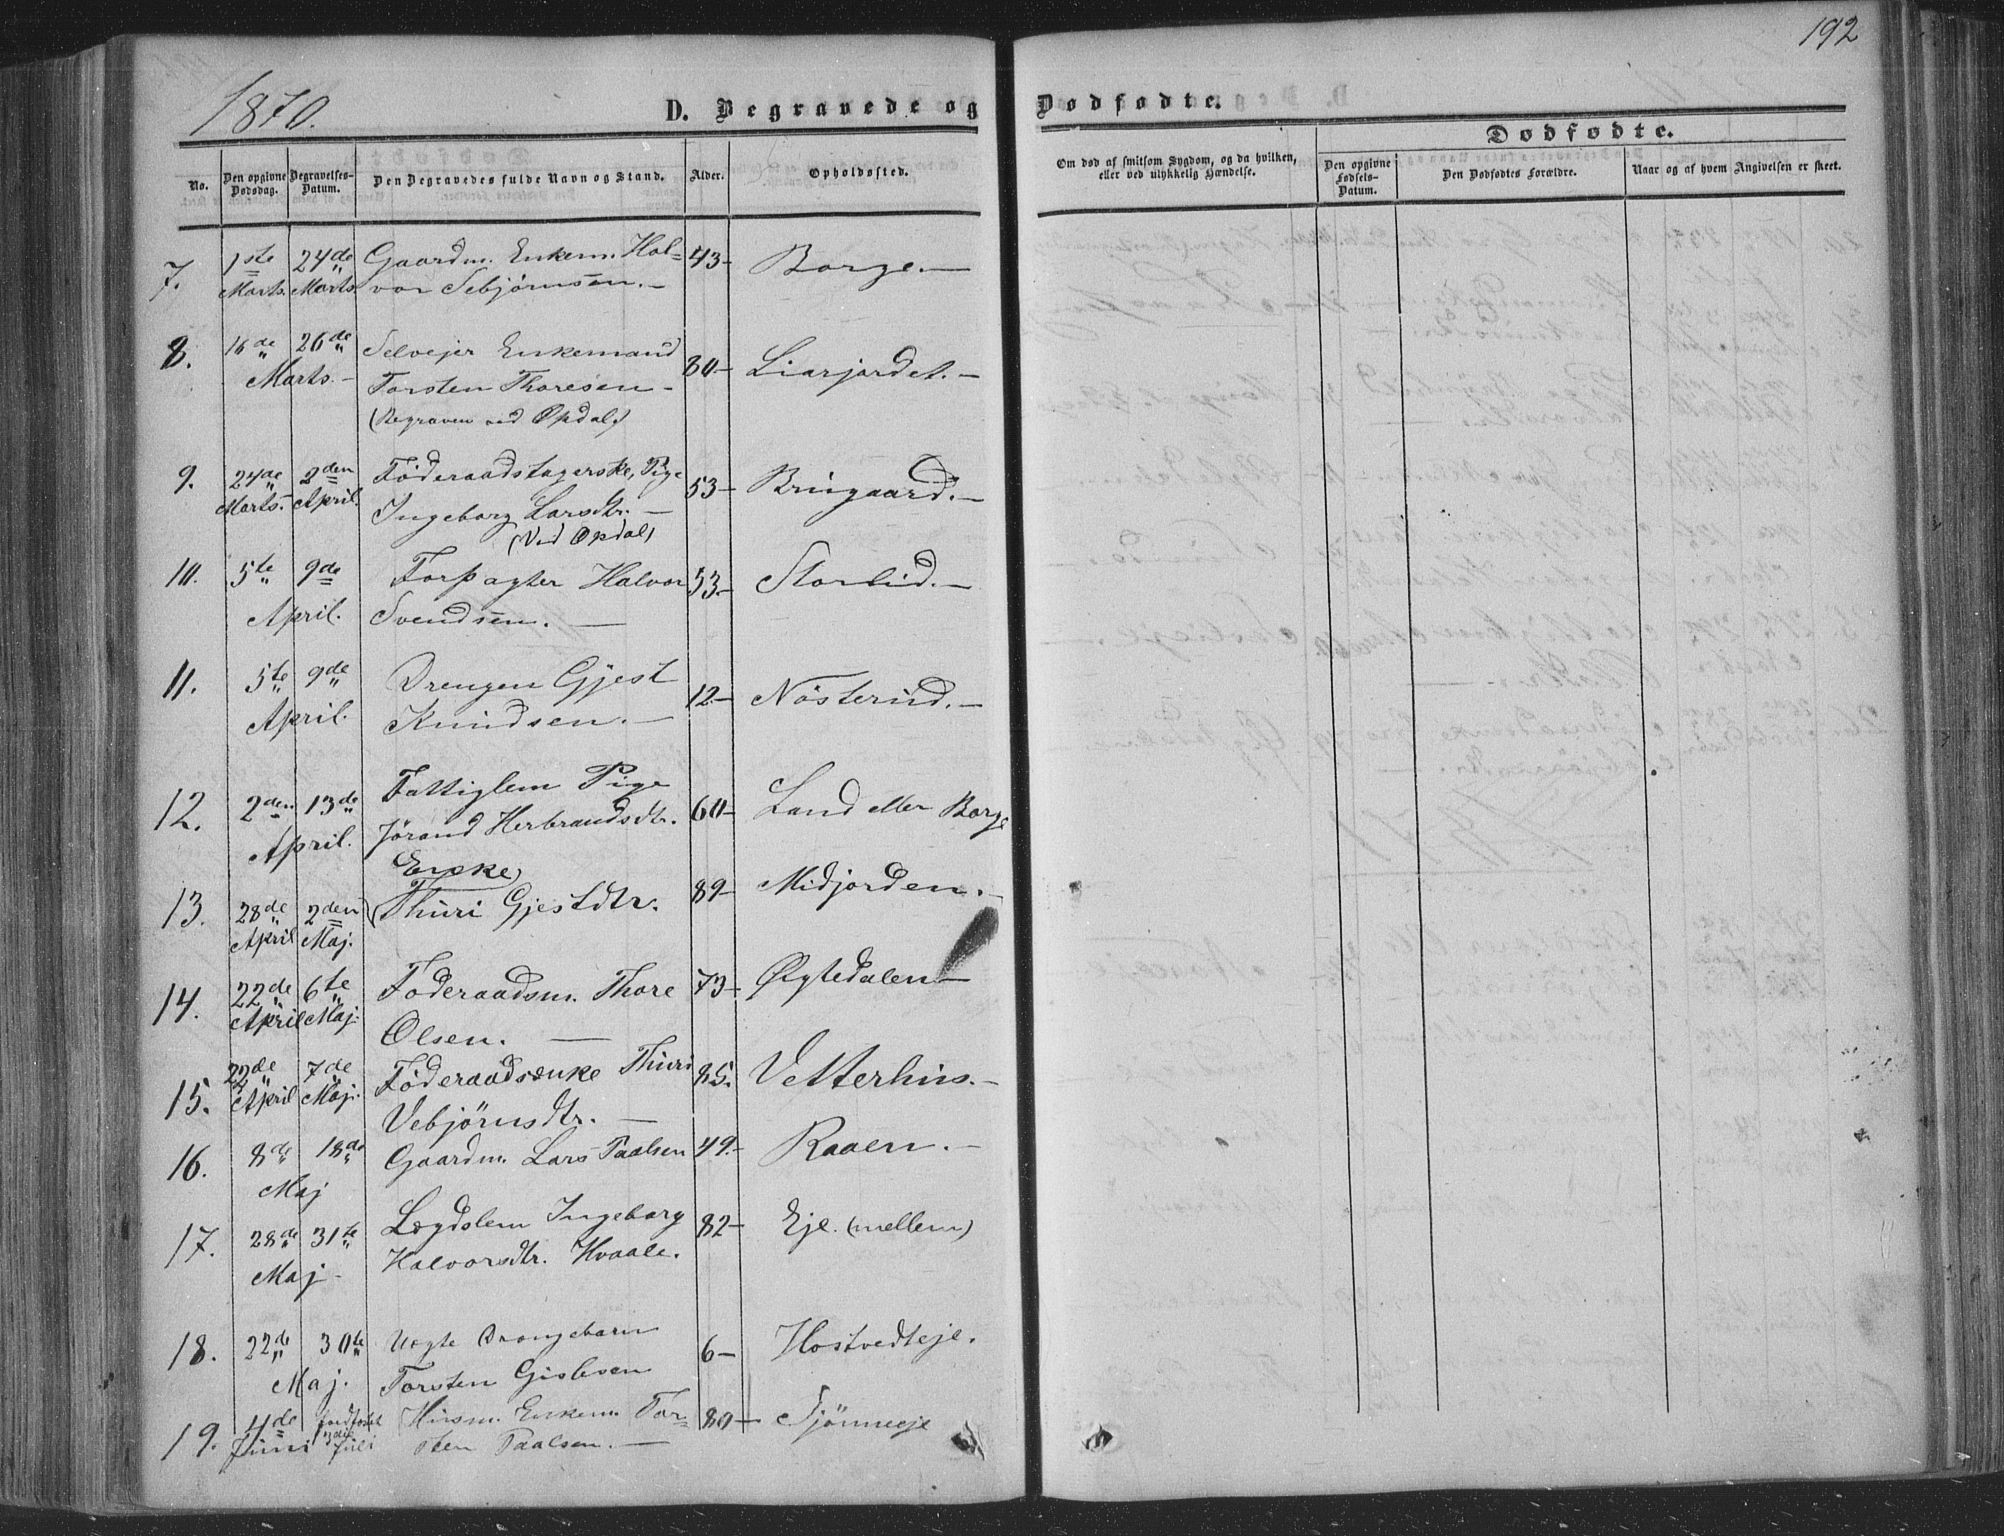 192
1870.
D. Begravede og Dødfødte.
Dødfødte.
No.
Den opgivne Dødsdag.
Begravelses-Datum.
Den Begravedes fulde Navn og Stand.
Alder.
Opholdssted.
Om død af smitsom Sygdom, og da hvilken,
eller ved ulykkelig Hændelse.
Den opgivne Fødsels-Datum.
Den Dødfødtes Forældre.
Naar og af hvem Angivelsen er skeet.
7. 1ste 24de Gaardm. Enkem. Hal= 43- Borge.-
Marts. Marts. vor Sebjørnsen.-
8. 16de 26de Selvejer Enkemand 80- Liarjordet.-
Marts.- Torsten Thoresen-
(Begraven ved Opdal)
9. 24de 2den Föderaadstagerske, Pige 53- Bringaard.-
Marts. April. Ingeborg Larsdtr.-
(Ved Opdal)
10. 5te 9de Forpagter Halvor 53- Storlid.-
April. Svendsen.-
11. 5te 9de Drengen Gjest 12- Nösterud.-
April. Knudsen.-
12. 2den 13de Fattiglem Pige 60- Land eller Borge
April. Jörand Herbrandsdtr.
Enke
13. 28de 2den (Thuri Gjestdtr. 89- Midjorden.-
April Maj.
14. 22de 6te Föderaadsm. Thore 73- Øygtedalen-
April Maj. Olsen.-
15. 22de 7de Föderaadsenke Thuri 85. Vetterhus.-
April Maj. Vebjörnsdtr.-
16. 8de 18de Gaardm. Lars Paalsen 49.- Raaen.-
Maj
17. 28de 31te Lægdslem Ingeborg 82- Eje. (mellem)
Maj- Halvorsdtr. Hvaale.
18. 22de 30te Uægte Drengebarn 6- Hostvedteje.
Maj. Torsten Gislesen
19. 4de Husm. Enkem. Tor= 80- Tjönneeje
Juni Juli sten Paalsen.-